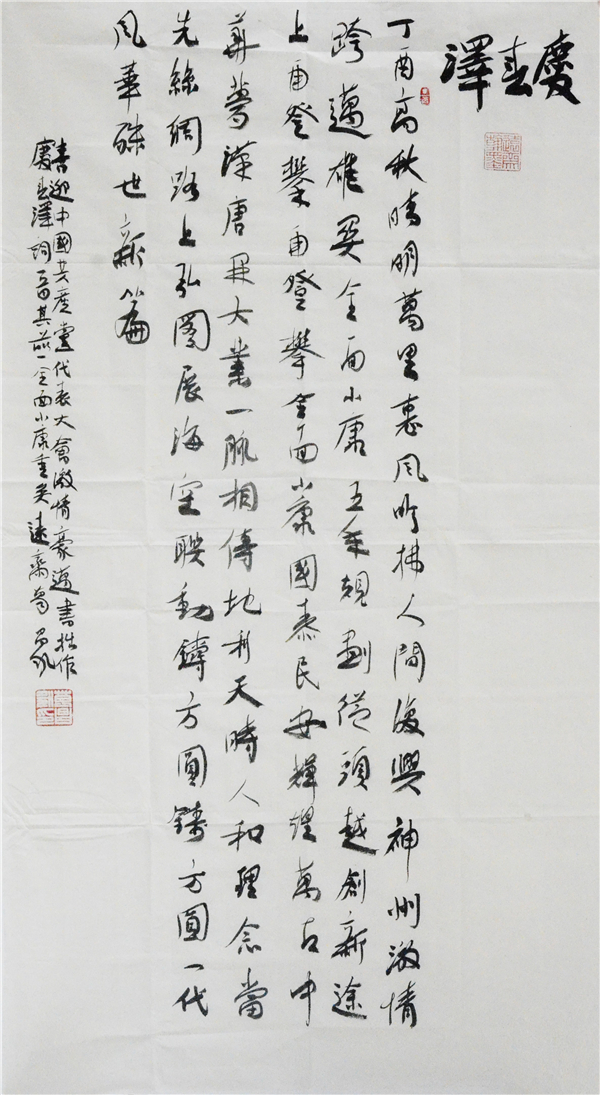 慶春澤
丁酉高秋晴明萬里惠風吟拂人間復興神州激情
跨邁雄關全面小康五年規劃從頭越創新途
上再登攀再登攀全面小康國泰民安輝煌萬古中
華夢漢唐開大業一脈相傳地利天時人和理念當
先絲綢路上弘圖展海空聯動鑄方圓鑄方圓一代
風華殊世新篇
喜迎中國共產黨代表大會激情豪邁書拙作
慶春澤詞首其一全面小康遠齋